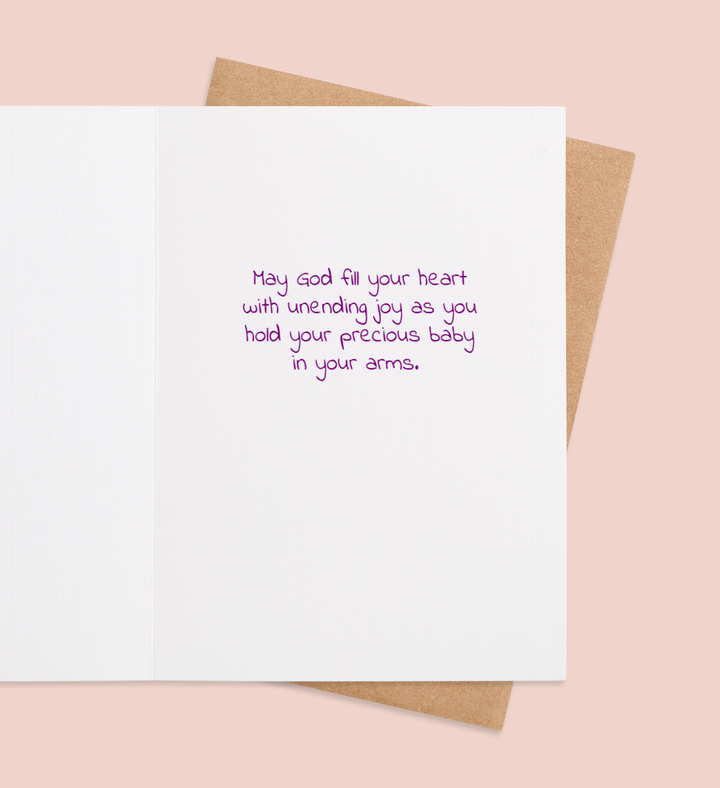 May God fill your heart
with unending joy as you
hold your precious baby
in your arms.